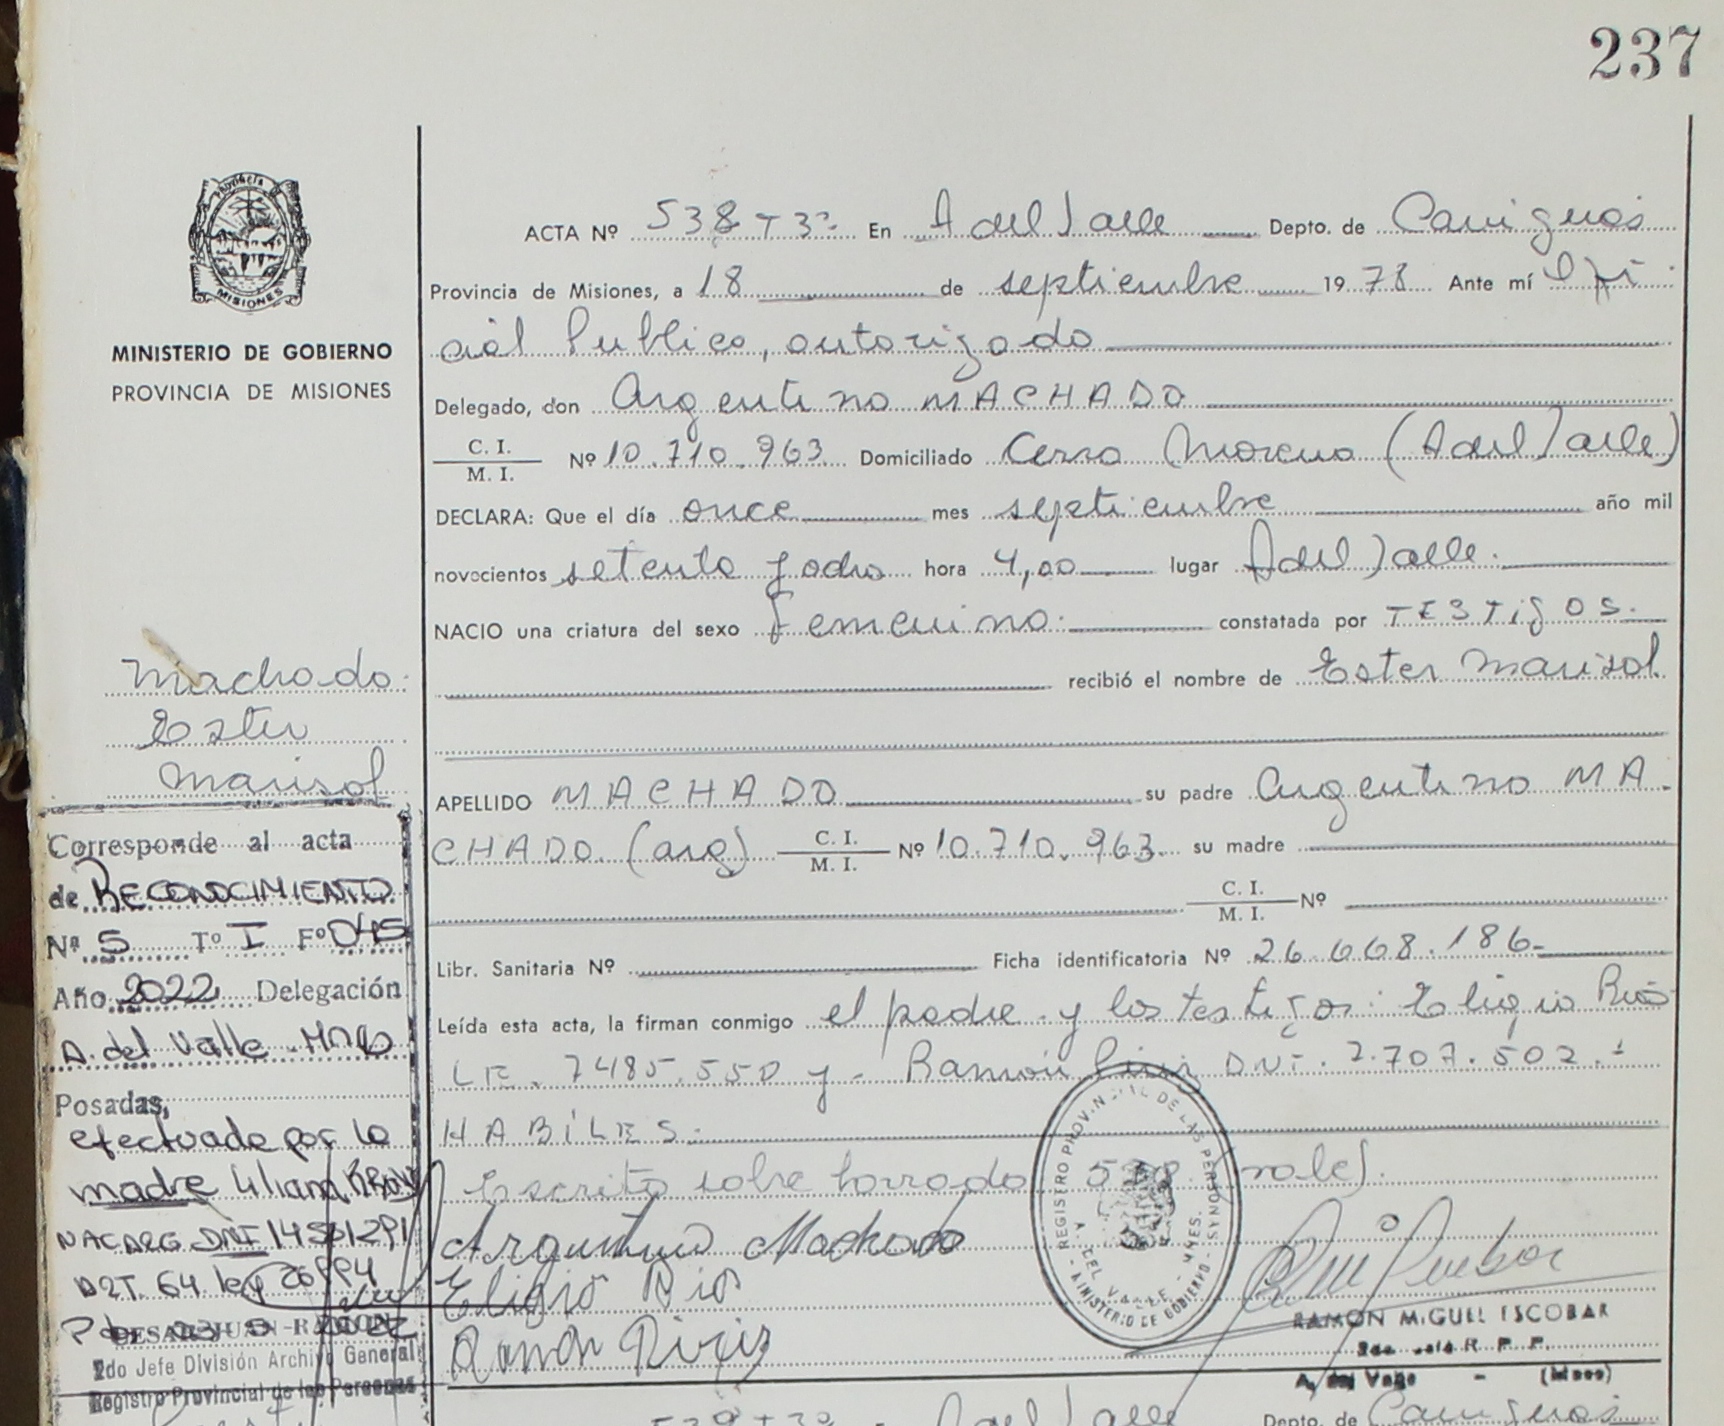 237
PROVINCIA
MISIONES
MINISTERIO DE GOBIERNO
PROVINCIA DE MISIONES
Machado
Ester
Marisol
Corresponde al acta
de RECONOCIMIENTO
Nº 5 Tº I Fº 045
Año 2022 Delegación
A. del Valle - Mnes
Posadas,
efectuado por la
madre Liliana
NAC ARG DNI 14561291
ART. 64 ley 26994
RAMON
2do Jefe División Archivo General
Registro Provincial de las Personas
ACTA Nº 538 T 3º En A del Valle Depto. de Cainguás
Provincia de Misiones, a 18 de septiembre 1978 Ante mí Ofi
cial Publico, autorizado
Delegado, don Argentino MACHADO
C. I.
M. I. Nº 10.710.963 Domiciliado Cerro Moreno (A del Valle)
DECLARA: Que el día once mes septiembre año mil
novecientos setenta y ocho hora 4,00 lugar A del Valle.
NACIO una criatura del sexo femenino. constatada por TESTigOS.
recibió el nombre de Ester Marisol
APELLIDO MACHADO su padre Argentino MA
CHADO. (arg) C. I.
M. I. Nº 10.710.963. su madre
C. I.
M. I. Nº
Libr. Sanitaria Nº Ficha identificatoria Nº 26.668.186-
Leída esta acta, la firman conmigo el padre y los testigos: Eligio Rios
LE. 7485.550 y - Ramón DNI. 7.707.502.-
HABÍLES.
Escrito sobre borrado 538 (vale).
REGISTRO PROVINCIAL DE LAS PERSONAS
A. DEL VALLE - MNES.
MINISTERIO DE GOBIERNO
Argentino Machado
Eligio Rio
Ramon
RAMON MIGUEL ESCOBAR
R. P. P.
A. del Valle - (Mnes)
539 T 3º A del Valle Depto. de Cainguás